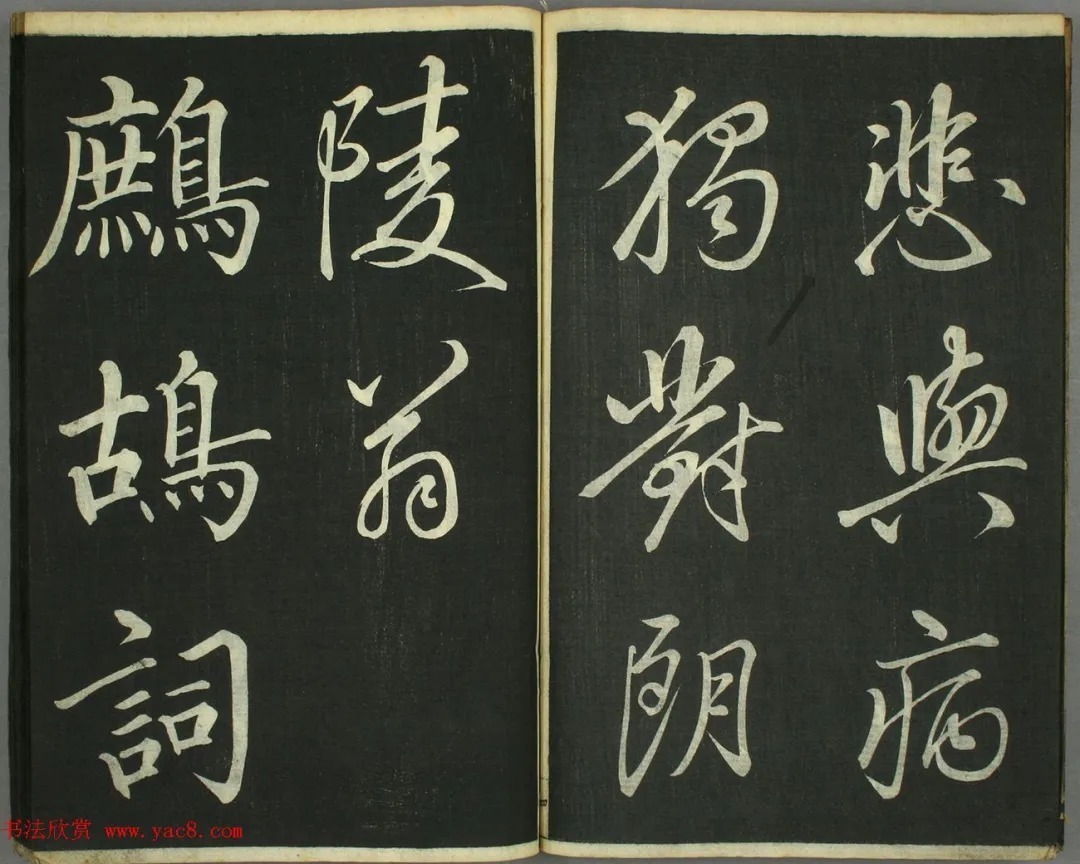 悲與病
獨對朗
陵翁
鷓鴣詞
书法欣赏 www.yac8.com